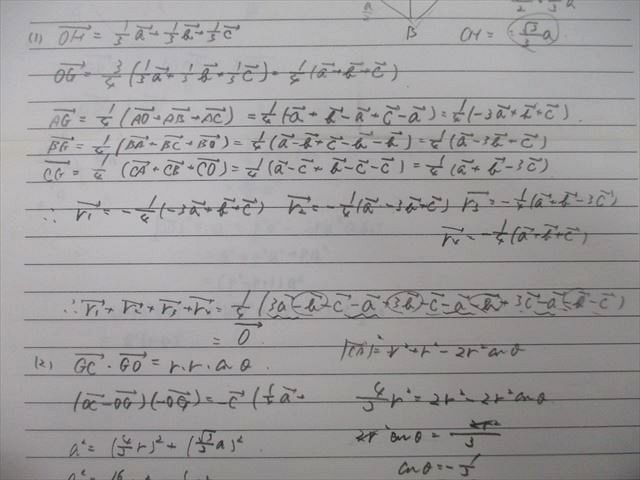 B
(1) OH = 1/3 a + 1/3 b + 1/3 c
CH = √3/3 a
OG = 3/4 (1/3 a + 1/3 b + 1/3 c) = 1/4 (a + b + c)
AG = 1/4 (AO + AB + AC) = 1/4 (-a + b - a + c - a) = 1/4 (-3a + b + c)
BG = 1/4 (BA + BC + BO) = 1/4 (a - b + c - b - b) = 1/4 (a - 3b + c)
CG = 1/4 (CA + CB + CO) = 1/4 (a - c + b - c - c) = 1/4 (a + b - 3c)
∴ r₁ = -1/4 (-3a + b + c) r₂ = -1/4 (a - 3b + c) r₃ = -1/4 (a + b - 3c)
r₄ = -1/4 (a + b + c)
∴ r₁ + r₂ + r₃ + r₄ = 1/4 (3a - b - c - a + 3b - c - a - b + 3c - a - b - c)
= 0
(2) GC · GO = r · r · cos θ
|CA|² = r² + r² - 2r² cos θ
(OC - OG)(-OG) = -c (
r² = 2r² - 2r² cos θ
a² = (4/3 r)² + (√3/3 a)²
cos θ = -1/3